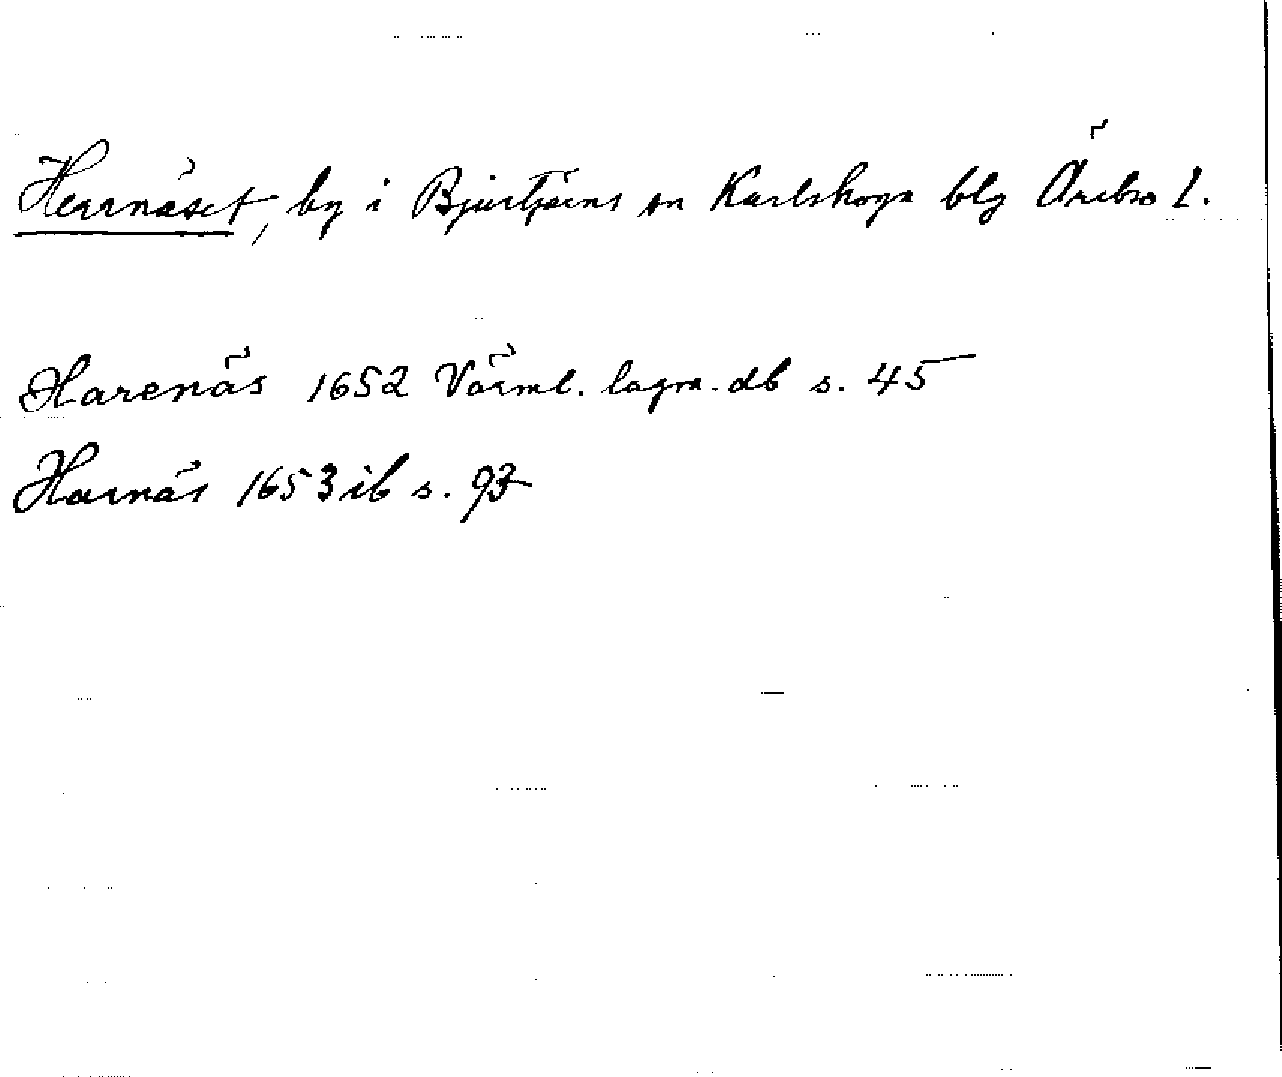 Herrnäset, by i Bjurtjärns sn Karlskoga blg Örebro l.
Harenäs 1652 Värml. lagm. db s. 45
Harnäs 1653 ib s. 93